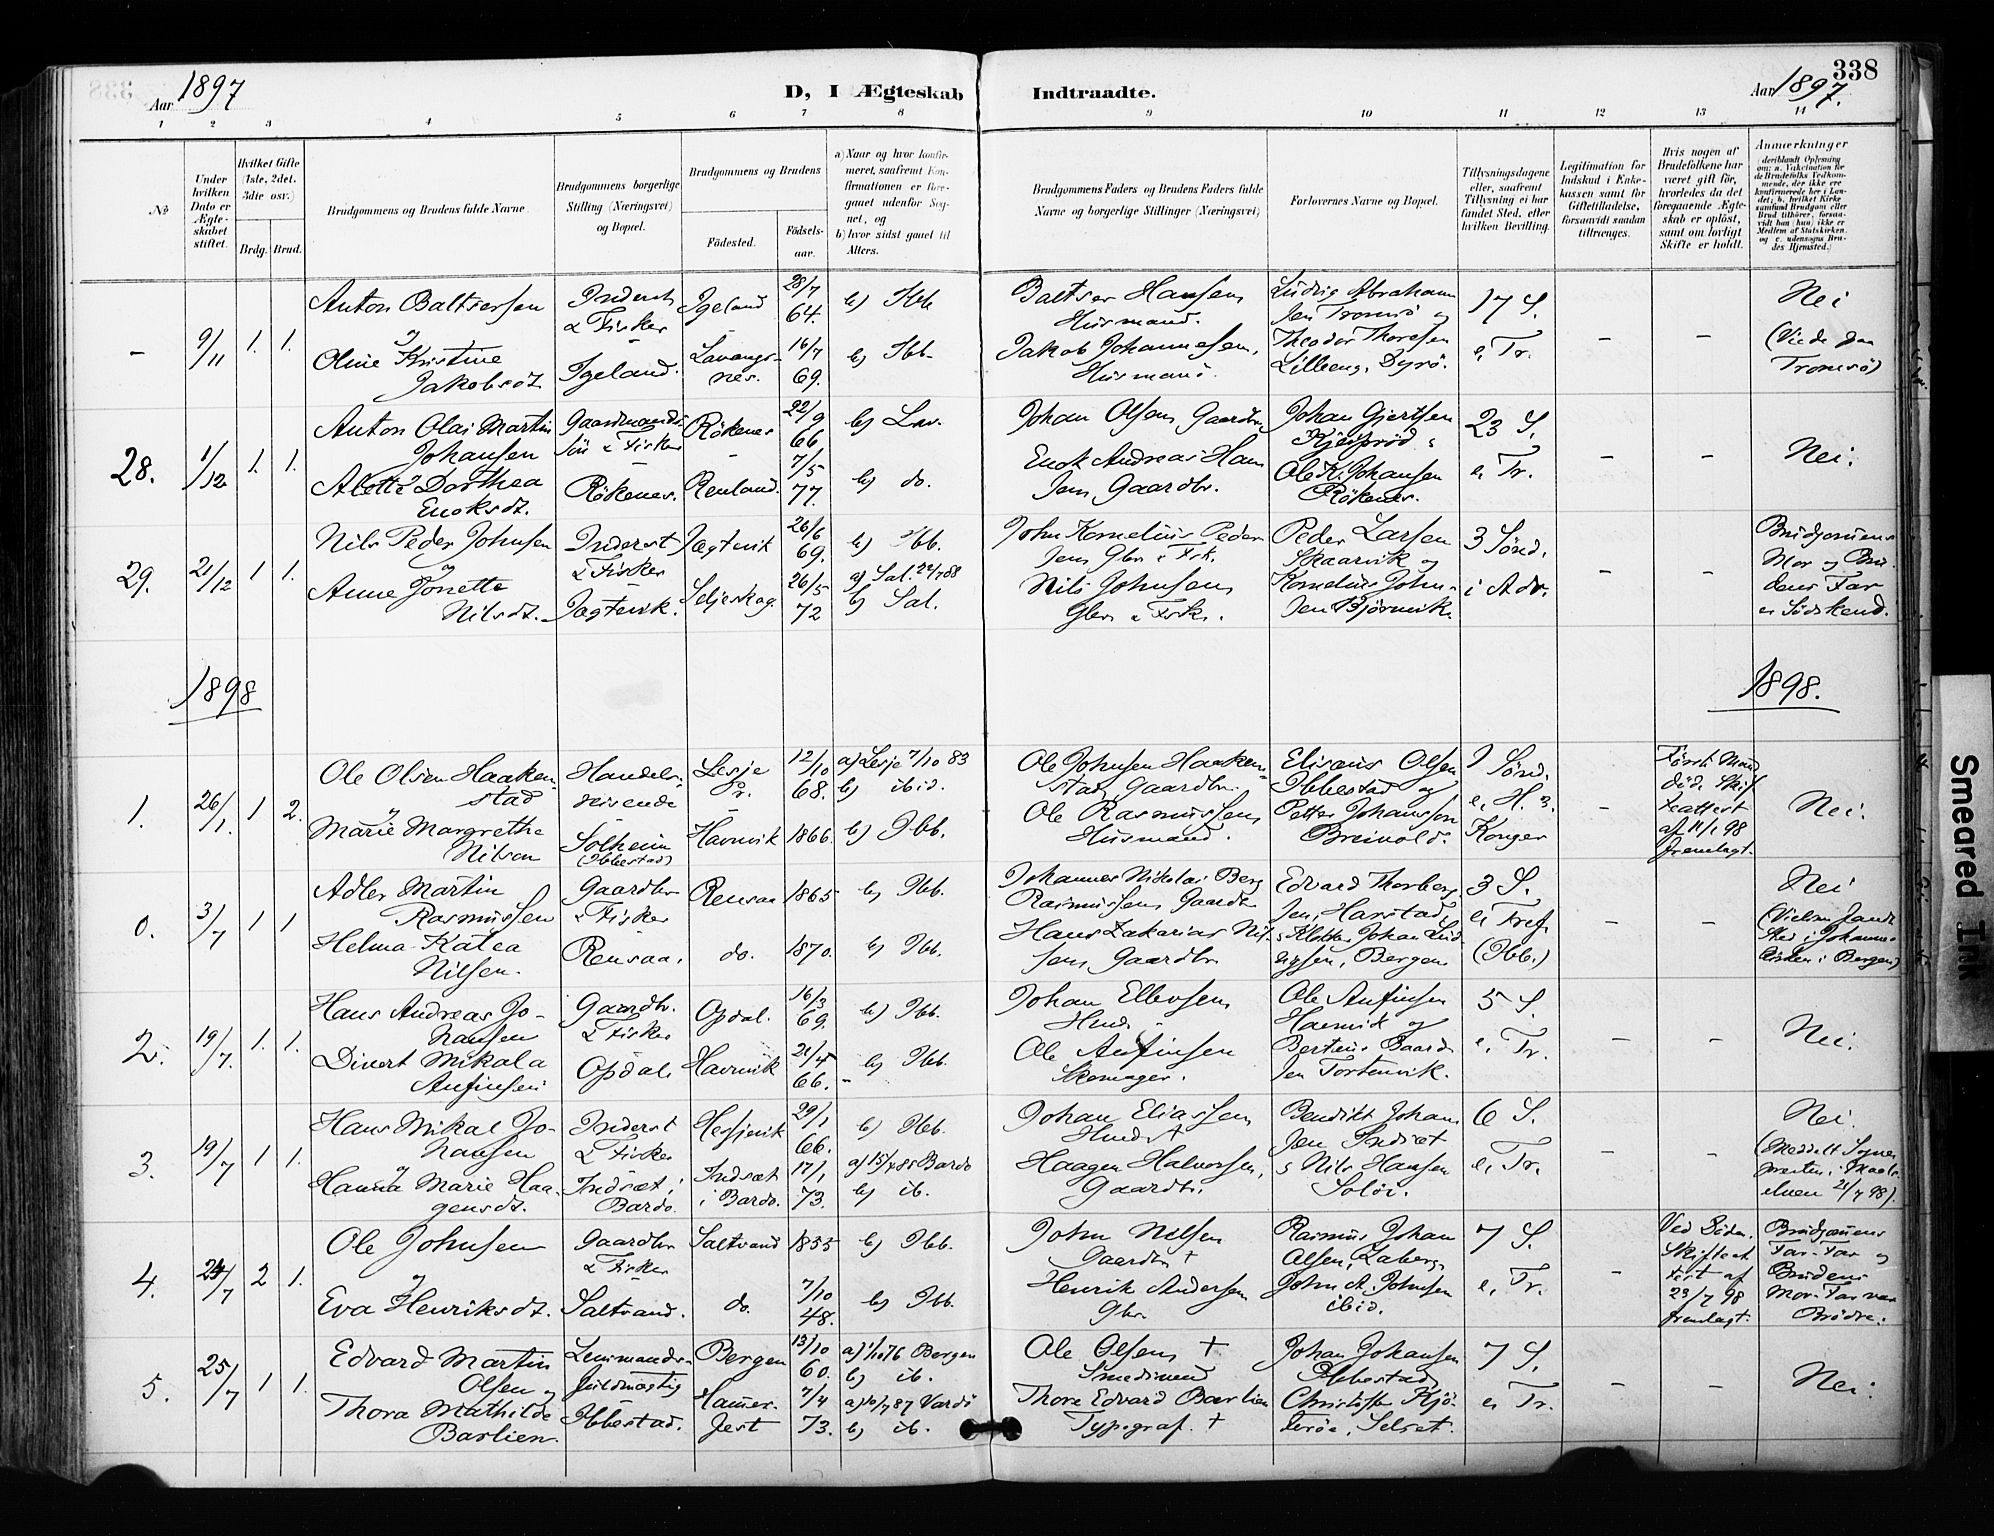 338
Aar 1897
D, I Ægteskab Indtraadte.
Aar 1897.
1 2 3 4 5 6 7 8 9 10 11 12 13 14
№
Under hvilken Dato er Ægteskabet stiftet.
Hvilket Gifte (1ste, 2det, 3die osv.)
Brdg. Brud.
Brudgommens og Brudens fulde Navne.
Brudgommens borgerlige Stilling (Næringsvei) og Bopæl.
Brudgommens og Brudens
Fødested.
Fødselsaar.
a) Naar og hvor konfirmeret, saafremt Konfirmationen er foregaaet udenfor Sognet, og
b) hvor sidst gaaet til Alters.
Brudgommens Faders og Brudens Faders fulde Navne og borgerlige Stillinger (Næringsvei)
Forlovernes Navne og Bopæl.
Tillysningsdagene eller, saafremt Tillysning ei har fundet Sted, efter hvilken Bevilling.
Legitimation for Indskud i Enkekassen samt for Giftetilladelse, forsaavidt saadan tiltrænges.
Hvis nogen af Brudefolkene har været gift før, hvorledes da det foregaaende Ægteskab er opløst, samt om lovligt Skifte er holdt.
Anmerkninger
- 9/11 1. 1.
Anton Baltsersen
og
Oline Kristine
Jakobsdt.
Inderst
& Fisker
Igeland.
Igeland
28/7
64.
b) Ibb
Lavangsnes.
16/7
69.
b) Ibb.
Baltser Hansen,
Husmand.
Jakob Johannesen,
Husmand.
Ludvig Abraham
sen Tromsö og
Theodor Thoresen
Lilleeng, Dyrö.
17 S.
e. Tr.
Nei
(Viede
Tromsö)
28. 1/12 1. 1.
Anton Olai Martin
Johansen
Alette Dorthea
Enoksdt.
Gaardmands
sön & Fisker
Rökenes.
Rökenes
22/9
66
b) Lav.
Renland.
7/5
77.
b) do.
Johan Olsen, Gaardbr
Enok Andreas Han
sen, Gaardbr.
Johan Gjertsen
Ole K. Johansen
Rökenes.
23 S.
e. Tr.
Nei.
29. 21/12 1 1.
Nils Peder Johnsen
og
Anne Jonette
Nilsdt.
Inderst
& Fisker
Jægtevik.
Jægtevik
26/6
69.
b) Ibb.
Seljeskog.
26/5
72
a) Sal. 22/7 88
b) Sal.
John Kornelius Peder
sen Gbr & Fsk.
Nils Johnsen
Gbr & Fisk.
Peder Larsen
Skaarvik og
Kornelius John-
sen Bjørnvik.
3 Sönd.
i Adv.
Brudgommens
Mor og Bru-
dens Far
er Södskend.
1898 1898.
1. 26/1. 1 2.
Ole Olsen Haaken-
stad
og
Marie Margrethe
Nilsen
Handels-
reisende
Solheim
(Ibbestad)
Lesje
Pr.
12/10
68.
a) Lesje 7/10 83
b) ibid.
Havnvik
1866.
b) Ibb.
Ole Johnsen Haaken-
stad, Gaardbr.
Ole Rasmussen,
Husmand.
Elisæus Olsen
Ibbestad og
Petter Johansson
Breivold.
Sönd.
e. H. 3
Konger
Første Mand
død. Skif-
teattest
af 11/1 98
fremlagt.
Nei.
0. 3/7 1 1
Adler Martin
Rasmussen
Helma Katea
Nilsen.
Gaardbr
& Fisker
Rensaa.
Rensaa
1865
b) Ibb.
do.
1870.
b) Ibb.
Johannes Nikolai Berg
Rasmussen Gaardbr
Hans Zakarias Nil-
sen, Gaardbr
Edvard Thorberg-
sen, Harstad,
Johan Lud-
vigsen, Bergen.
3 S.
e. Tref.
(Ibb.)
Nei
(Vielsen fandt
Sted i Johannes
Kirken i Bergen)
2. 19/7. 1. 1.
Hans Andreas Jo-
hansen
Divert Mikala
Anfinsen
Gaardbr.
& Fisker
Opdal.
Opdal.
16/3
69.
b) Ibb.
Havnvik
21/4
66.
b) Ibb.
Johan Ellevsen
Ole Anfinsen
Skomager.
Ole Anfinsen
Havnvik og
Berteus Baard
sen Tortenvik.
5 S.
e. Tr.
Nei.
3. 19/7 1 1.
Hans Mikal Jo-
hansen
og
Hanna Marie Haa-
gensdt.
Inderst
& Fisker
Indset i
Bardo.
Hesjevik
29/1
66.
b) Ibb.
Indsæt
i Bardo.
17/1
73.
b) ib.
Johan Eliassen
Haagen Halvorsen,
Gaardbr.
Bendikt Johan
sen Indset
Nils Hansen
Soløi.
6 S.
e. Tr.
Nei.
(Meddelt Sogne-
presten i Maals-
elven 21/7 98).
4. 24/7 2 1.
Ole Johnsen
og
Eva Henriksdt.
Gaardbr
& Fisker
Saltvand.
Saltvand
1855
b) Ibb.
do.
7/10
48.
b) Ibb.
John Nilsen
Gaardbr †
Henrik Andersen
Gbr.
Rasmus Johan
Olsen,
John A. Johnsen
ibid.
7 S.
e. Tr.
Ved Döden.
Skifteat-
test af
23/7 98
fremlagt.
Brudgommens
Far-Far og
Brudens
Mor-Far var
Brödre.
5. 25/7 1 1.
Edvard Martin
Olsen og
Thora Mathilde
Barlien.
Lensmands-
fuldmægtig
Ibbestad.
Bergen
13/10
60.
a) 1/10 76 Bergen
b) ib.
Hammer-
fest
7/4
73.
Vardö
b) ib.
Ole Olsen †
Smedsvend
Thore Edvard Barlien
Typograf. †
Johan Johansen
Ibbestad
Christoffer Kjö-
teröe, Selset.
7 S.
e. Tr.
Nei.
Smeared Ink